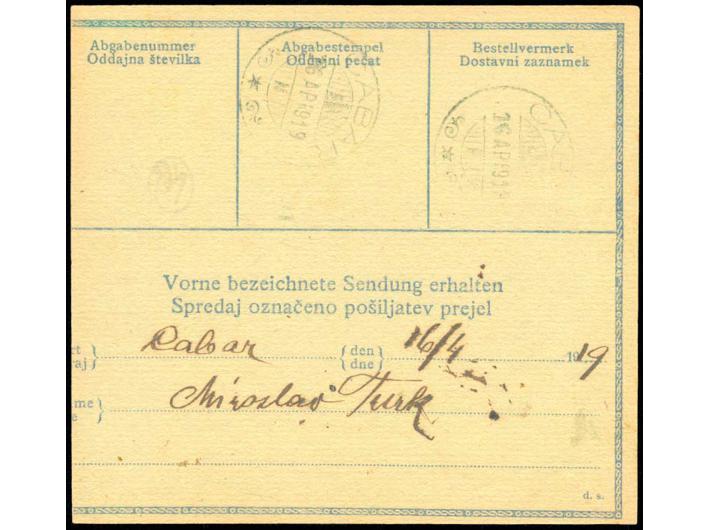 Abgabenummer
Oddajna številka
Abgabestempel
Oddajni pečat
Bestellvermerk
Dostavni zaznamek
ČABAR
26 AP 919
ČAB
26 AP 919
Vorne bezeichnete Sendung erhalten
Spredaj označeno pošiljatev prejel
rt } Čabar { den 16/4 1919
aj } { dne
me } Miroslav Turk
e }
d. s.